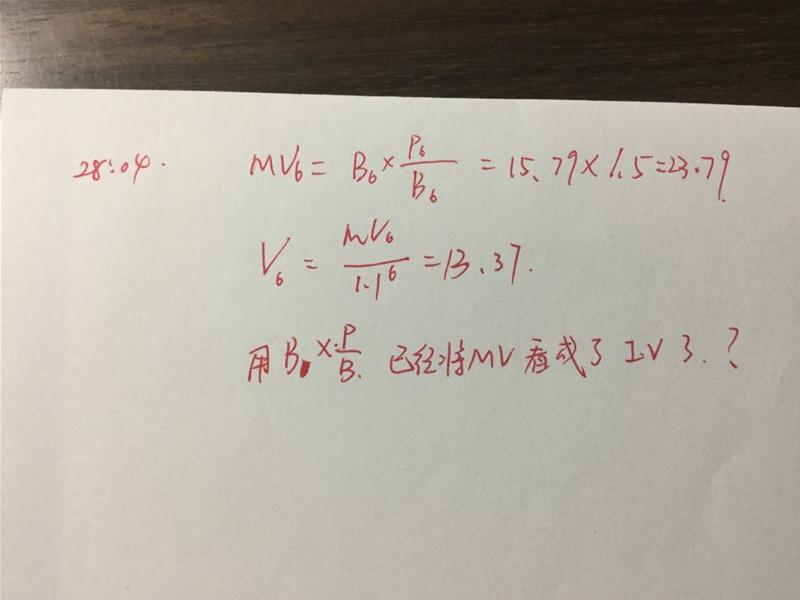 28:04. MV₆ = B₆ × P₆/B₆ = 15.79 × 1.5 = 23.79
V₆ = MV₆/1.1⁶ = 13.37.
用 B × P/B. 已经将MV看成了 I.V 了.?